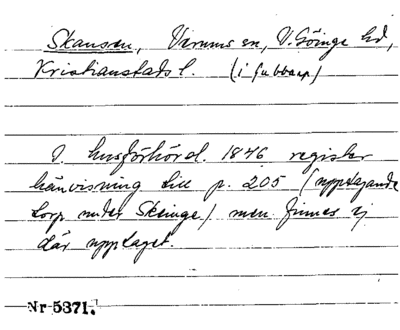 Skansen, Verums sn, V. Göinge hd,
Kristianstads l. (i Gubbarp)
I husförhörsl. 1846 register
hänvisning till p. 205 (upptagande
torp under Skeinge) men finnes ej
där upptaget.
Nr 5371.